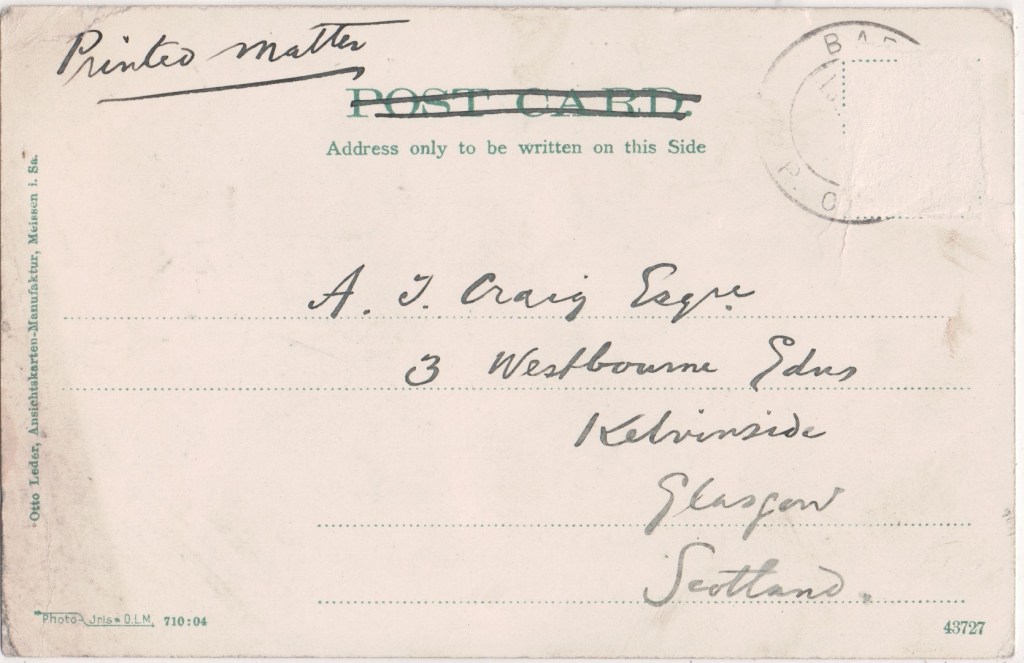 Printed matter
POST CARD.
Address only to be written on this Side
A. J. Craig Esqre
3 Westbourne Gdns
Kelvinside
Glasgow
Scotland.
Otto Leder, Ansichtskarten-Manufaktur, Meissen i. Sa.
Photo-Jris-O.L.M. 710:04
43727